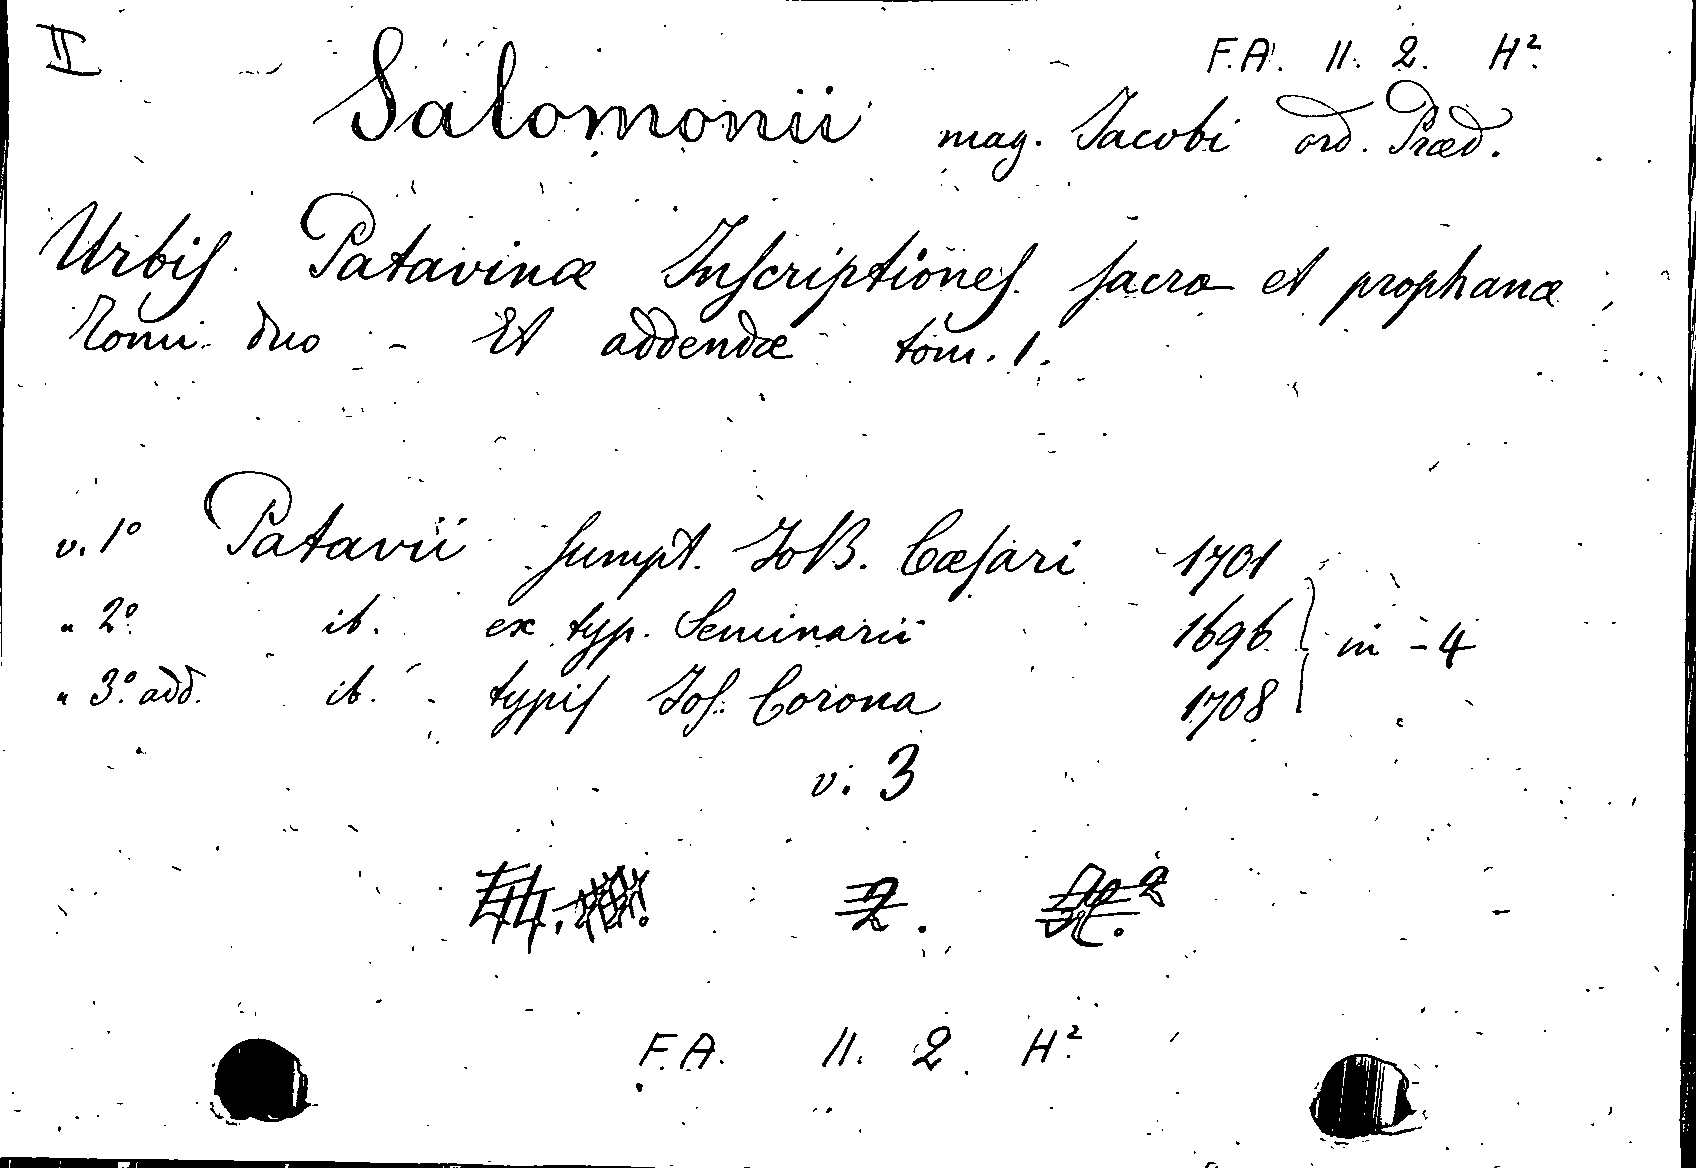 II
F.A. 11. 2. H².
Salomonii mag. Jacobi ord. Præd.
Urbis Patavinæ Inscriptiones sacræ et prophanæ
Tomi duo - Et addendæ tom. 1.
v. 1º Patavii sumpt. JoB. Cæsari 1701
" 2º ib. ex typ. Seminarii 1696 in - 4
" 3º add. ib. - typis Jos. Corona 1708
v. 3
44. 2. H.²
F.A. 11. 2 H²